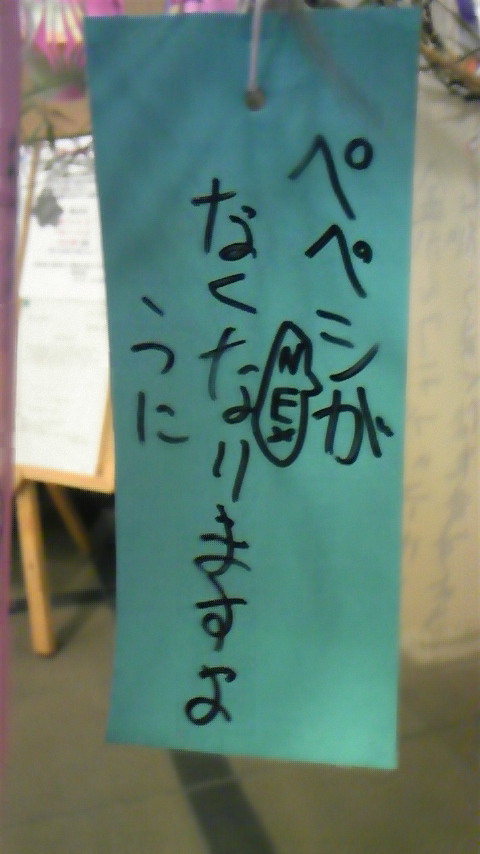 ペペシが
NEX
なくなりますよ
うに